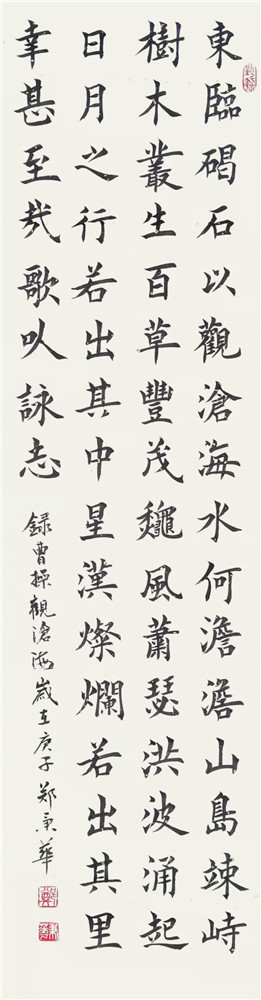 東臨碣石以觀滄海水何澹澹山島竦峙
樹木叢生百草豐茂龝風蕭瑟洪波涌起
日月之行若出其中星漢燦爛若出其里
幸甚至哉歌以詠志
録曹操觀滄海歲在庚子鄭秉華